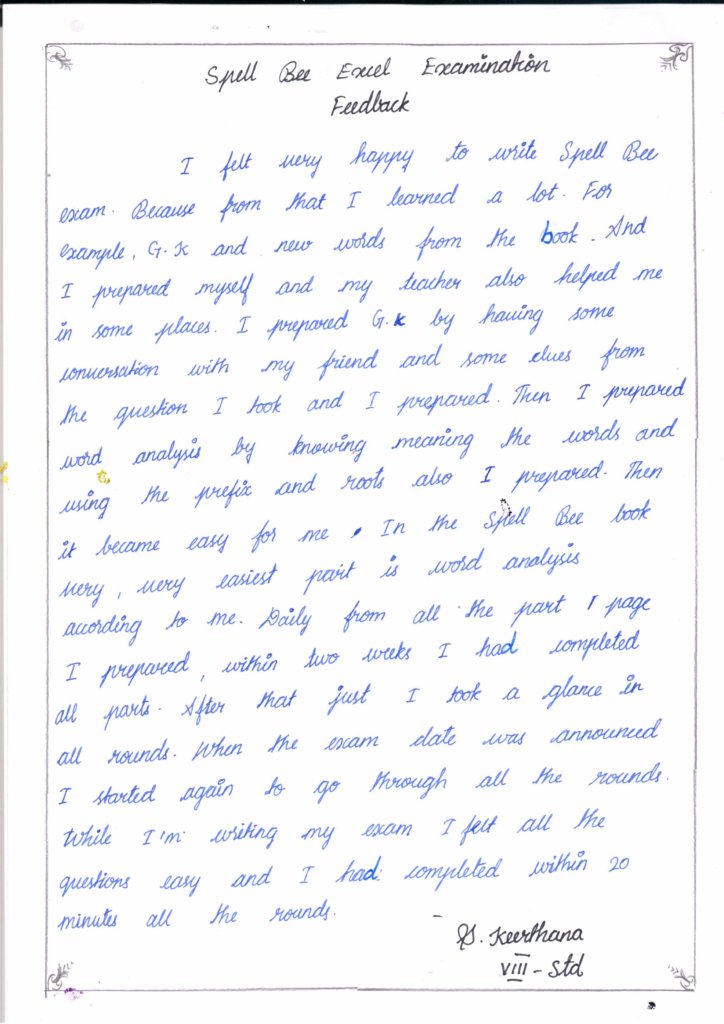 Spell Bee Excel Examination
Feedback
I felt very happy to write Spell Bee
exam. Because from that I learned a lot. For
example, G.K and new words from the book. And
I prepared myself and my teacher also helped me
in some places. I prepared G.K by having some
conversation with my friend and some clues from
the question I took and I prepared. Then I prepared
word analysis by knowing meaning the words and
using the prefix and roots also I prepared. Then
it became easy for me. In the Spell Bee book
very, very easiest part is word analysis
acording to me. Daily from all the part 1 page
I prepared, within two weeks I had completed
all parts. After that just I took a glance in
all rounds. When the exam date was announced
I started again to go through all the rounds.
While I'm writing my exam I felt all the
questions easy and I had completed within 20
minutes all the rounds.
S. Keerthana
VIII - Std